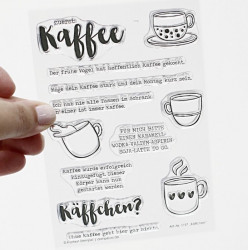 zuerst
Kaffee
Der frühe Vogel hat hoffentlich Kaffee gekocht.
Möge dein Kaffee stark und dein Montag kurz sein.
Ich hab nie alle Tassen im Schrank.
Einer ist immer Kaffee.
FÜR MICH BITTE
EINEN KARAMELL-
WODKA-VALIUM-
SOJA-LATTE TO GO
Kaffee wurde erfolgreich
hinzugefügt. Dieser
Körper kann nun
gestartet werden.
Käffchen?
Ohne Kaffee geht hier gar nichts.